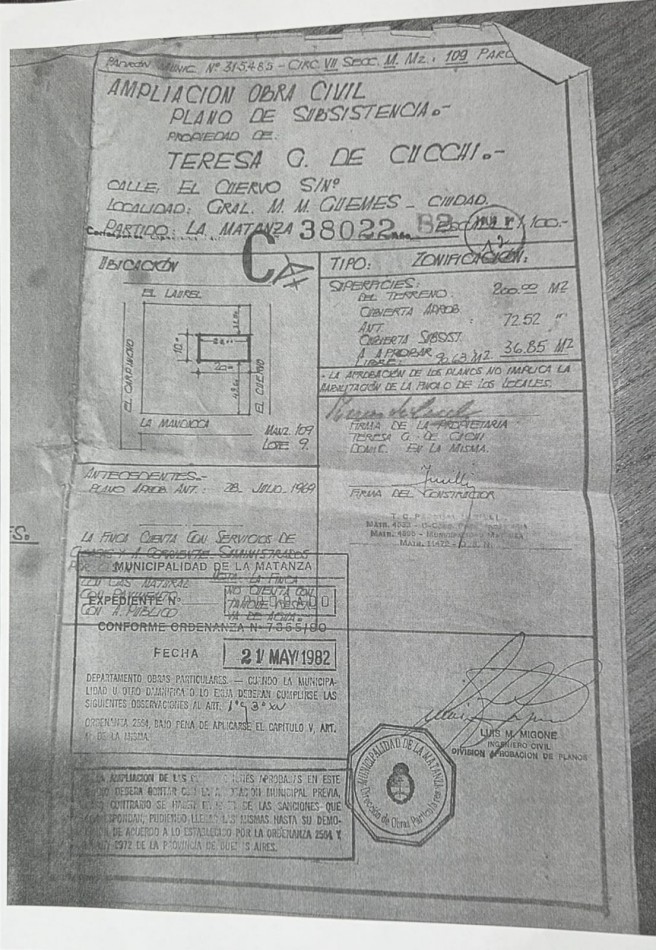 PADRÓN MUNIC. Nº 315485 - CIRC VII SECC. M. MZ: 109 PARC
AMPLIACION OBRA CIVIL
PLANO DE SUBSISTENCIA.-
PROPIEDAD DE:
TERESA G. DE CUCCHI.-
CALLE: EL CUERVO S/Nº
LOCALIDAD: GRAL. M. M. GUEMES - CIUDAD.
PARTIDO: LA MATANZA 38022 82 1/100.-
C
UBICACIÓN
EL LAUREL
EL CUERVO
LA MANDIOCA
MANZ. 109
LOTE 9.
TIPO: ZONIFICACIÓN:
SUPERFICIES:
DEL TERRENO: 200.00 M2
CUBIERTA APROB
ANT. : 72.52 "
CUBIERTA SUBSIST.
A APROBAR 36.85 M2
LIBRE: 9.63 M2
- LA APROBACIÓN DE LOS PLANOS NO IMPLICA LA
HABILITACIÓN DE LA FINCA O DE LOS LOCALES.
FIRMA DE LA PROPIETARIA
TERESA G. DE
DOMIC. EN LA MISMA.
FIRMA DEL CONSTRUCTOR
ANTECEDENTES.-
PLANO APROB ANT.: 28 JULIO 1969
ES.
LA FINCA CUENTA CON SERVICIOS DE
CORRIENTE SUMINISTRADOS
MUNICIPALIDAD DE LA MATANZA
CON GAS NATURAL
CON PAVIMENTO
CON A. PUBLICO
NOTA: LA FINCA
NO CUENTA CON
TANQUE RESER
VA DE AGUA.
EXPEDIENTE Nº
CONFORME ORDENANZA Nº 7355/80
FECHA 21 MAY 1982
DEPARTAMENTO OBRAS PARTICULARES. — CUANDO LA MUNICIPA-
LIDAD U OTRO DAMNIFICADO LO EXIJA DEBERAN CUMPLIRSE LAS
SIGUIENTES OBSERVACIONES AL ART.
ORDENANZA 2504, BAJO PENA DE APLICARSE EL CAPITULO V, ART.
DE LA MISMA.
LUIS M. MIGONE
INGENIERO CIVIL
DIVISION APROBACION DE PLANOS
MUNICIPALIDAD DE LA MATANZA
Dirección de Obras Particulares
AMPLIACION DE APROBADAS EN ESTE
DEBERA CONTAR CON LA MUNICIPAL PREVIA,
CONTRARIO SE DE LAS SANCIONES QUE
PUDIENDO LAS MISMAS HASTA SU DEMO-
DE ACUERDO A LO ESTABLECIDO POR LA ORDENANZA 2504 Y
DE LA PROVINCIA DE BUENOS AIRES.